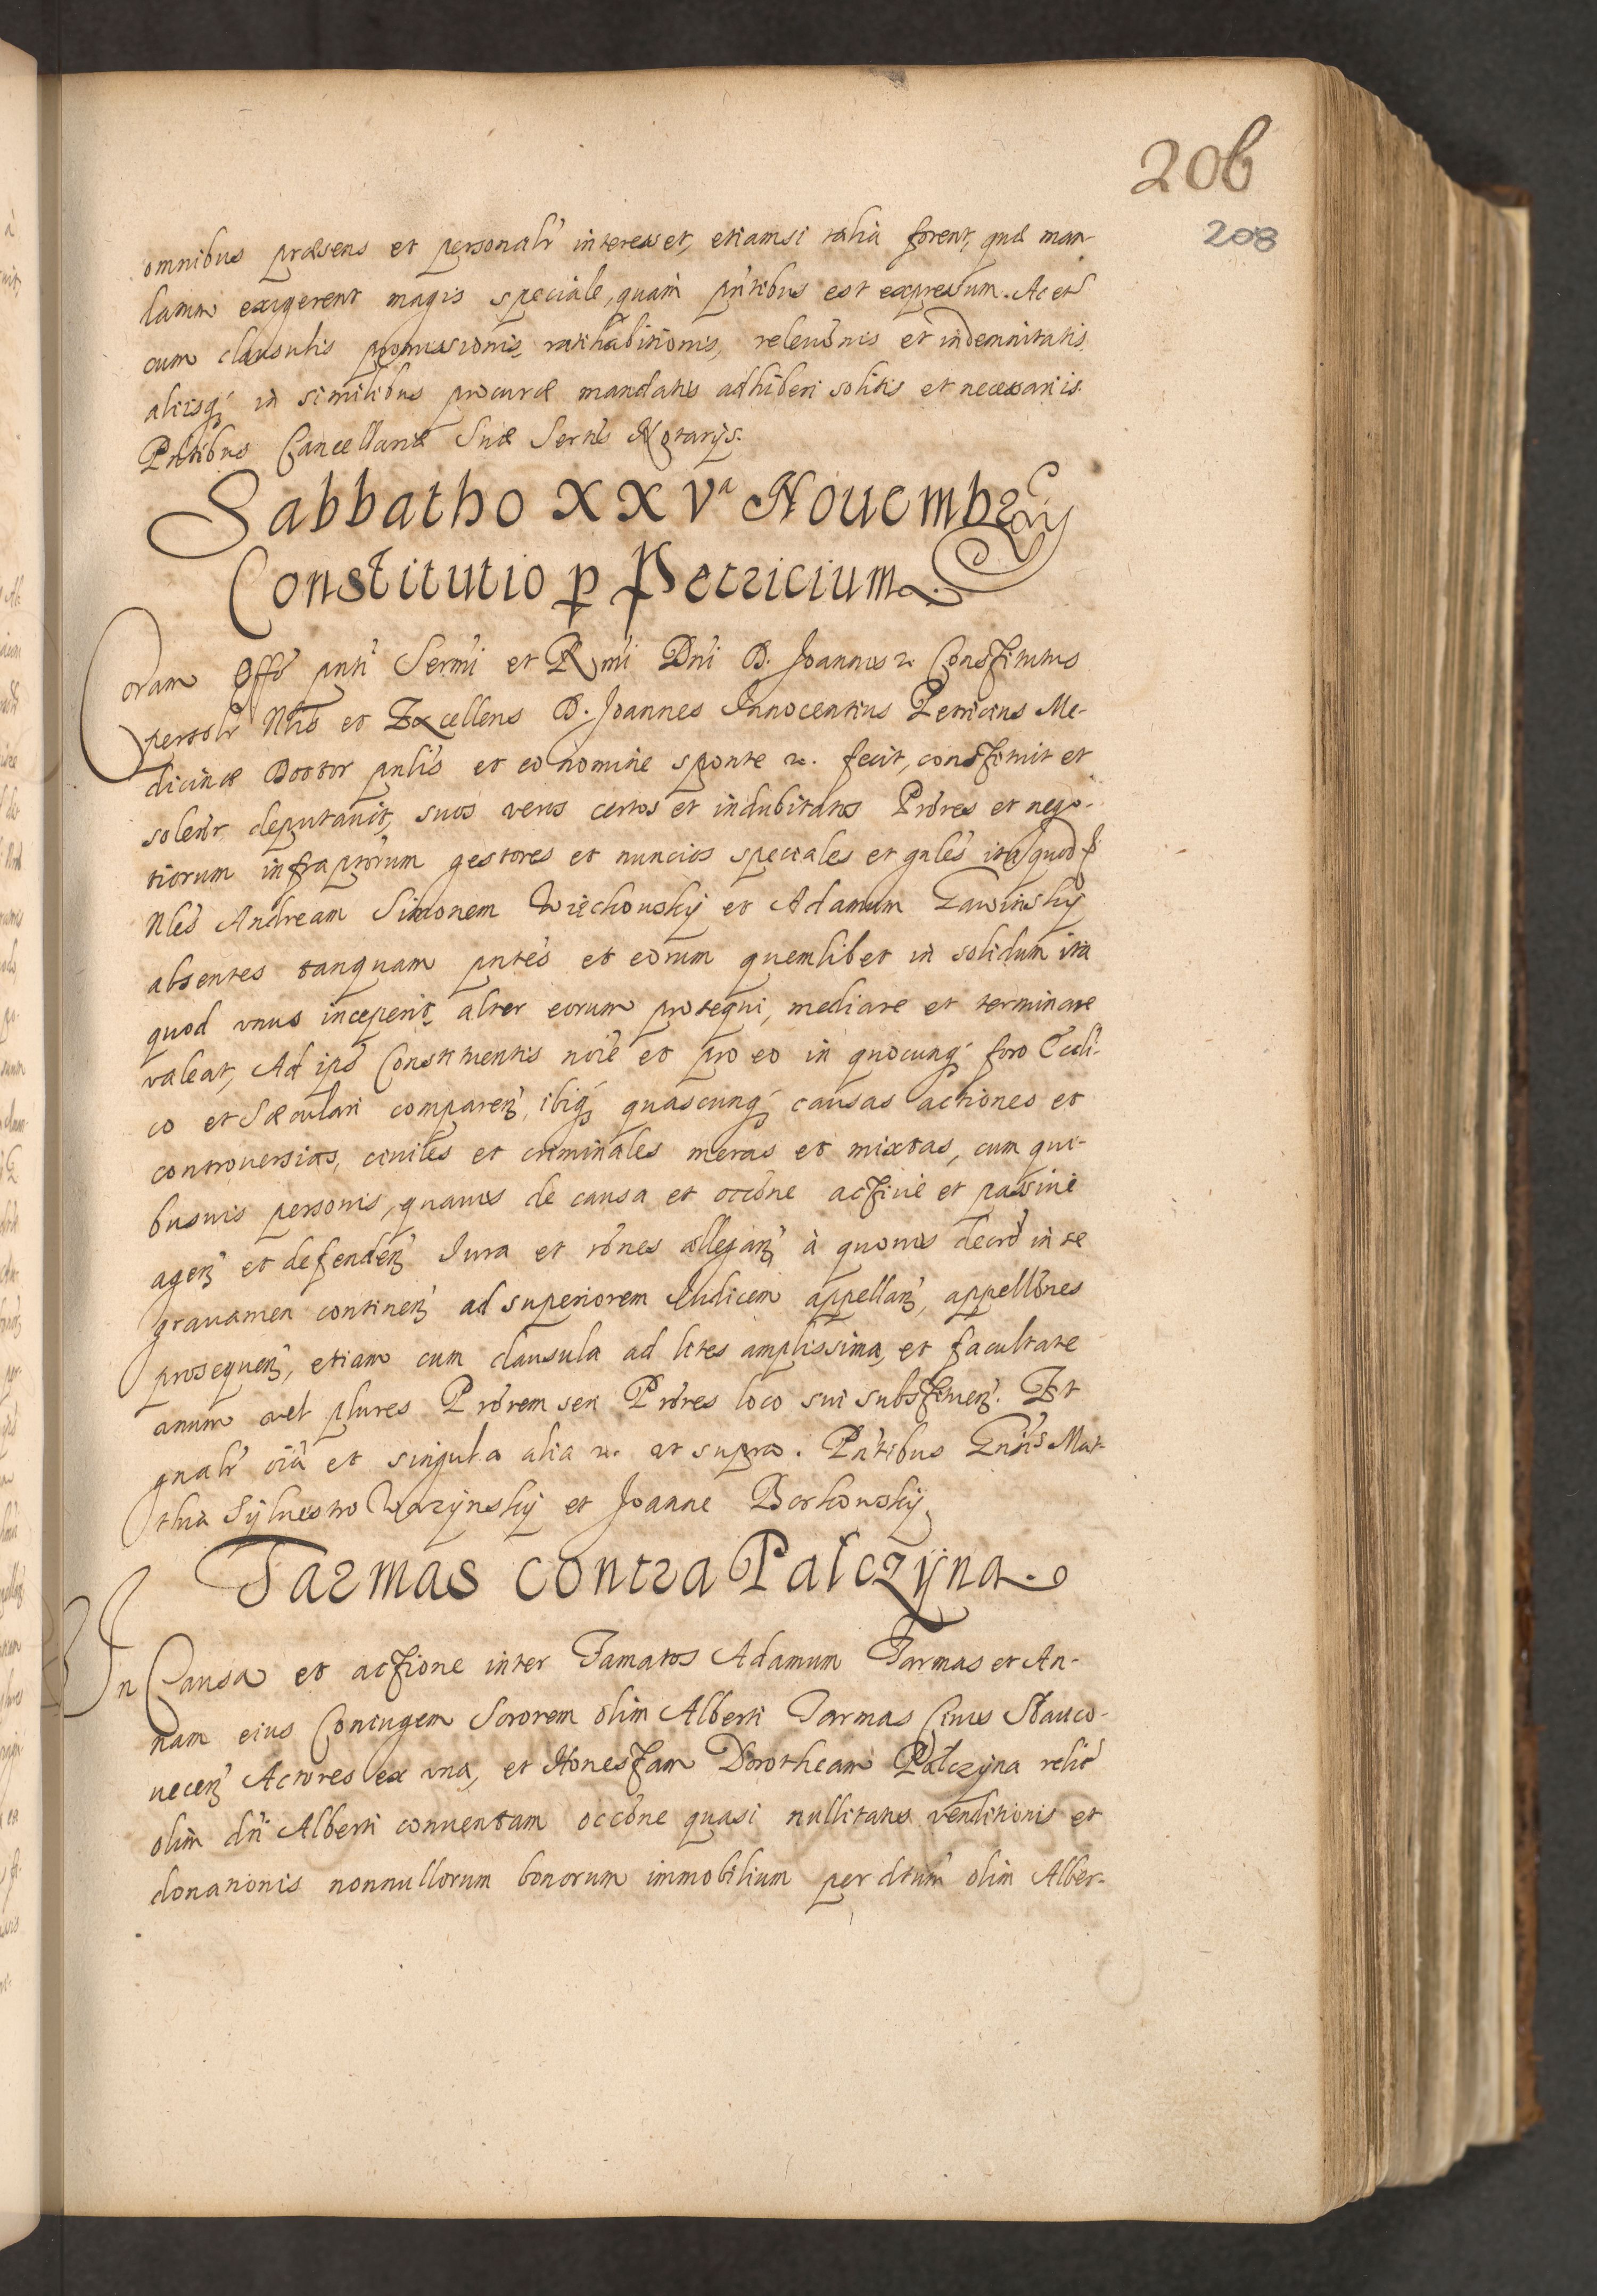 206
208
omnibus præsens et personalr̃ interesset, etiamsi talia forent, quæ man-
datum exigerent magis speciale, quam pntibus est expressum. Ac et
cum clausulis promissionis, ratihabitionis, releuõnis et indemnitatis
aliisq́ in similibus procuræ mandatis adhiberi solitis et necessariis.
Pntibus Cancellariæ Suæ Sertis Notarijs.
Sabbatho XXVª Nouembr
Constitutio p Petricium
Coram Offo pnti Sermi et Rmi Dni D. Joannis &c. Constitutus
persolr Nlis et Excellens D. Joannes Innocentius Petricius Me-
dicinæ Doctor pnlis et eo nomine sponte &c. fecit, constituit et
solenr deputauit, suos veros certos et indubitatos Prores et nego-
tiorum infraptorum gestores et nuncios speciales et gnles ita quod
Nles Andream Simonem Wiechowskij et Adamum Zawinskij
absentes tanquam pntes et eorum quemlibet in solidum ita
quod vnus inceperit, alter eorum prosequi, mediare et terminare
valeat, Ad ips Constituentis noie et pro eo in quocunq́ foro Eccli-
co et Sæculari comparen, ibiq́ quascunq́ causas actiones et
controuersias, ciuiles et criminales meras et mixtas, cum qui-
busuis personis, quauis de causa et occone actiue et passiue
agen et defenden Iura et rones allegan à quouis decro in se
grauamen continen ad superiorem Iudicem appellan, appellones
prosequen, etiam cum clausula ad lites amplissima, et facultate
vnum vel plures Prorem seu Prores loco sui substituen. Et
gnalr oia et singula alia &c. vt supra. Pntibus Gnsis Mat-
thia Syluestro Warzynskij et Joanne Borkowskij
Tarmas contra Palczyna.
In Causa et actione inter Famatos Adamum Tarmas et An-
nam eius Coniugem Sororem olim Alberti Tarmas Ciuis Slauco-
uecen Actores ex vna, et Honestam Dorotheam Palczyna relic
olim dni Alberti conuentam occone quasi nullitatis venditionis et
donationis nonnullorum bonorum immobilium per dtum olim Alber-